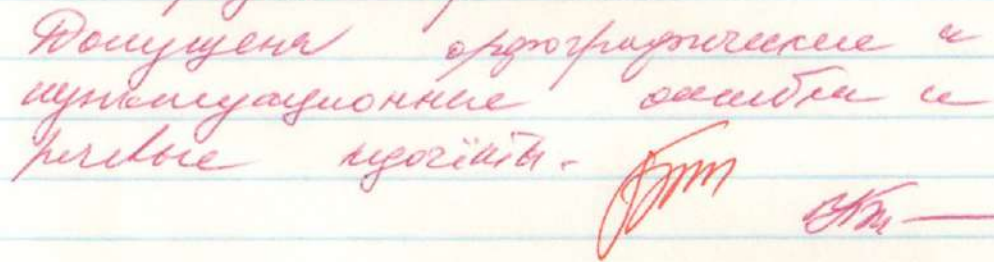 Допущены орфографические и
пунктуационные ошибки и
речевые недочёты.